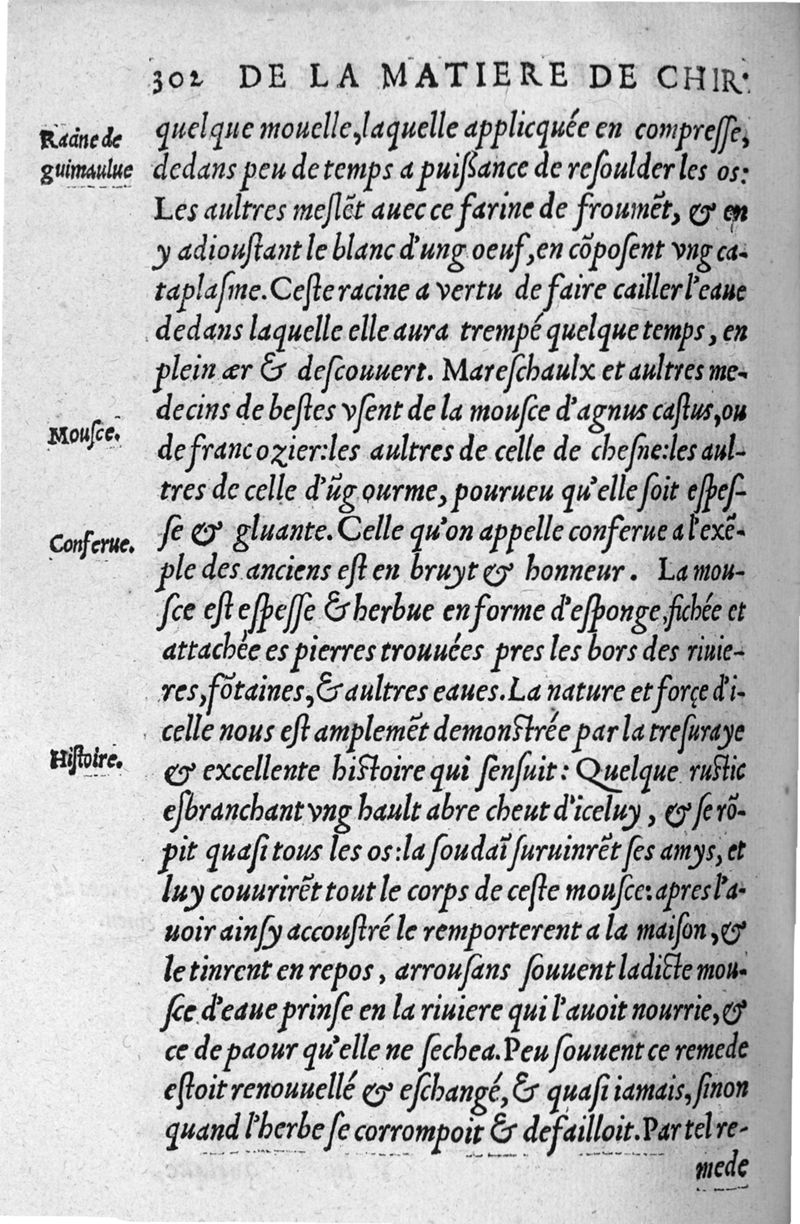 302 DE LA MATIERE DE CHIR.
Racine de
guimaulue
quelque mouelle, laquelle applicquée en compresse,
dedans peu de temps a puissance de resoulder les os:
Les aultres meslẽt auec ce farine de froumẽt, & en
y adioustant le blanc d'ung oeuf, en cõposent vng ca-
taplasme. Ceste racine a vertu de faire cailler l'eaue
dedans laquelle elle aura trempé quelque temps, en
plein ær & descouuert. Mareschaulx et aultres me-
decins de bestes vsent de la mousce d'agnus castus, ou
Mousce.
de franc ozier: les aultres de celle de chesne: les aul-
tres de celle d'ũg ourme, pourueu qu'elle soit espes-
se & gluante. Celle qu'on appelle conferue a l'exẽ-
Conferue.
ple des anciens est en bruyt & honneur. La mou-
sce est espesse & herbue en forme d'esponge, fichée et
attachée es pierres trouuées pres les bors des riuie-
res, fõtaines, & aultres eaues. La nature et forçe d'i-
celle nous est amplemẽt demonstrée par la tresuraye
Histoire.
& excellente histoire qui sensuit: Quelque rustic
esbranchant vng hault abre cheut d'iceluy, & se rõ-
pit quasi tous les os: la soudaĩ suruinrẽt ses amys, et
luy couurirẽt tout le corps de ceste mousce: apres l'a-
uoir ainsy accoustré le remporterent a la maison, &
le tinrent en repos, arrousans souuent ladicte mou-
sce d'eaue prinse en la riuiere qui l'auoit nourrie, &
ce de paour qu'elle ne sechea. Peu souuent ce remede
estoit renouuellé & eschangé, & quasi iamais, sinon
quand l'herbe se corrompoit & defailloit. Par tel re-
mede